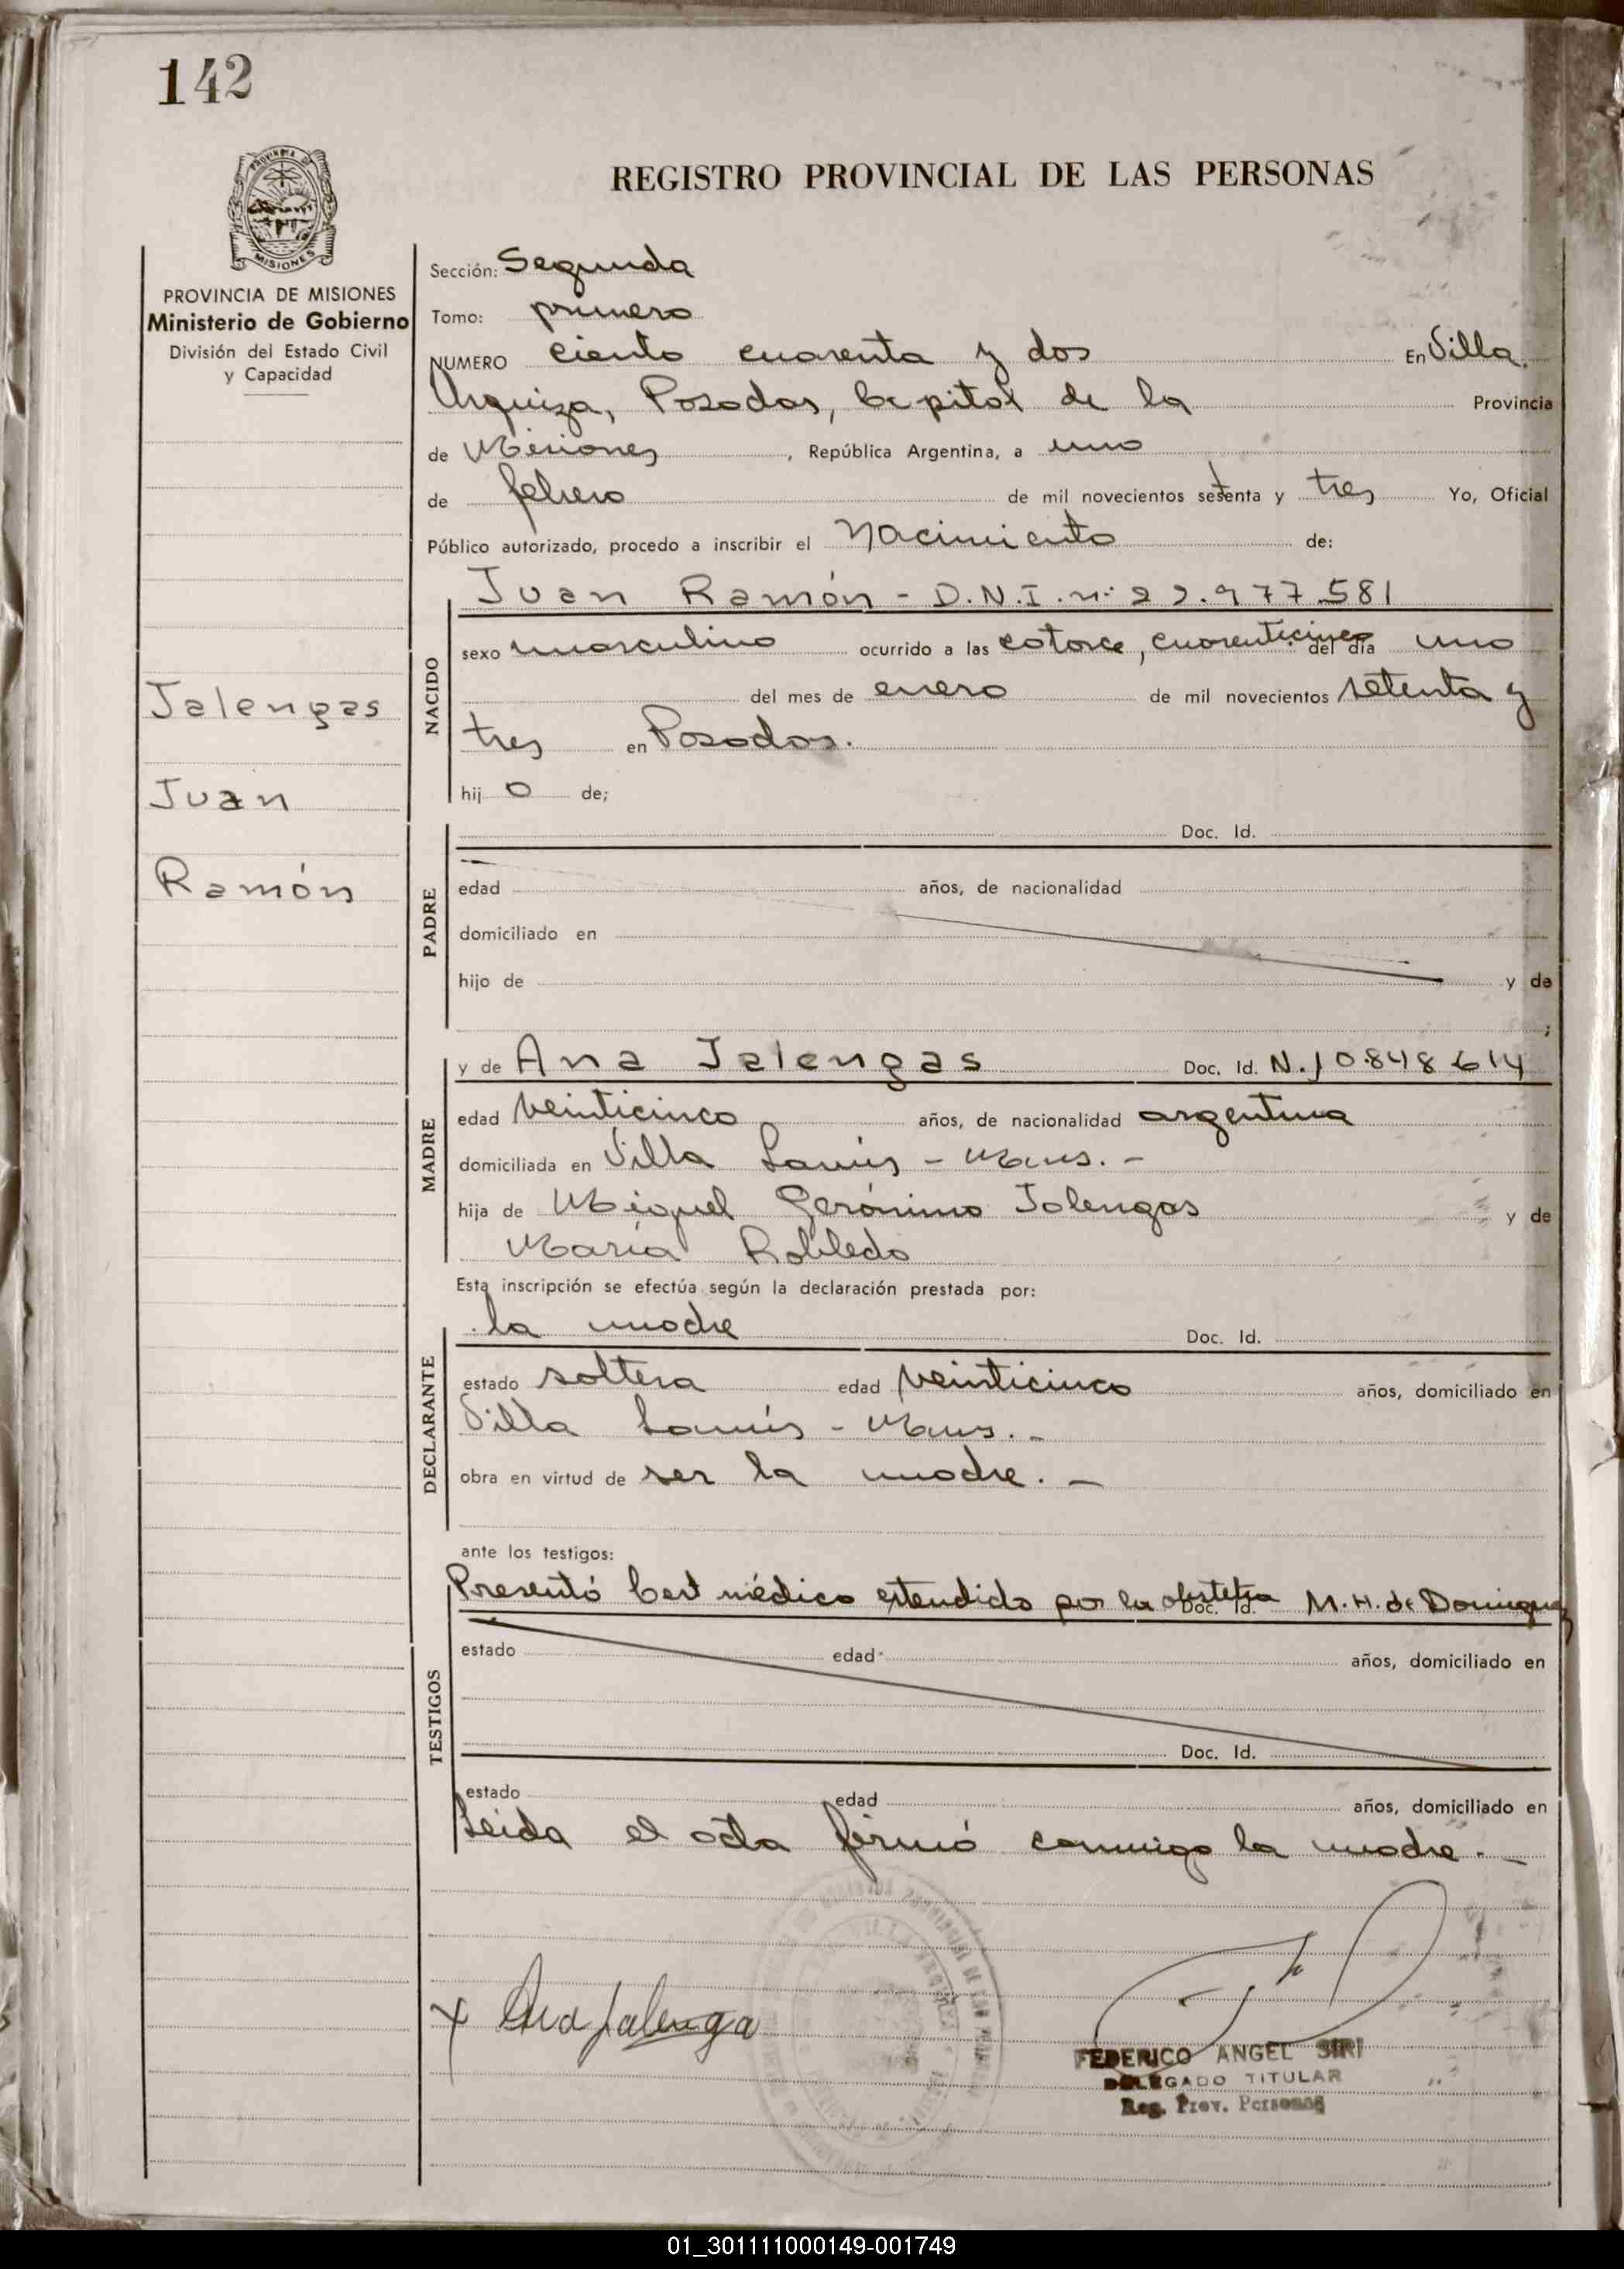 142
PROVINCIA DE MISIONES
REGISTRO PROVINCIAL DE LAS PERSONAS
PROVINCIA DE MISIONES
Ministerio de Gobierno
División del Estado Civil
y Capacidad
Jalengas
Juan
Ramón
Sección: Segunda
Tomo: primero
NUMERO ciento cuarenta y dos En Villa
Urquiza, Posadas, Capital de la Provincia
de Misiones, República Argentina, a uno
de febrero de mil novecientos setenta y tres Yo, Oficial
Público autorizado, procedo a inscribir el Nacimiento de:
NACIDO
Juan Ramón - D.N.I. nº 22.977.581
sexo masculino ocurrido a las catorce, cuarenticinco del día uno
del mes de enero de mil novecientos setenta y
tres en Posadas.
hijo de;
PADRE
Doc. Id.
edad años, de nacionalidad
domiciliado en
hijo de y de
;
MADRE
y de Ana Jalengas Doc. Id. N.10.848.614
edad veinticinco años, de nacionalidad argentina
domiciliada en Villa Lanús - Mnes. -
hija de Miguel Gerónimo Jalengas y de
María Robledo
Esta inscripción se efectúa según la declaración prestada por:
DECLARANTE
la madre Doc. Id.
estado soltera edad veinticinco años, domiciliado en
Villa Lanús - Mnes. -
obra en virtud de ser la madre. -
ante los testigos:
TESTIGOS
Presentó Cert médico extendido por la obstetra Doc. Id. M. H. de Dominguez
estado edad años, domiciliado en
Doc. Id.
estado edad años, domiciliado en
Leida el acta firmó conmigo la madre. -
x Ana Jalenga
FEDERICO ANGEL SIRI
DELEGADO TITULAR
Reg. Prov. Personas
01_301111000149-001749